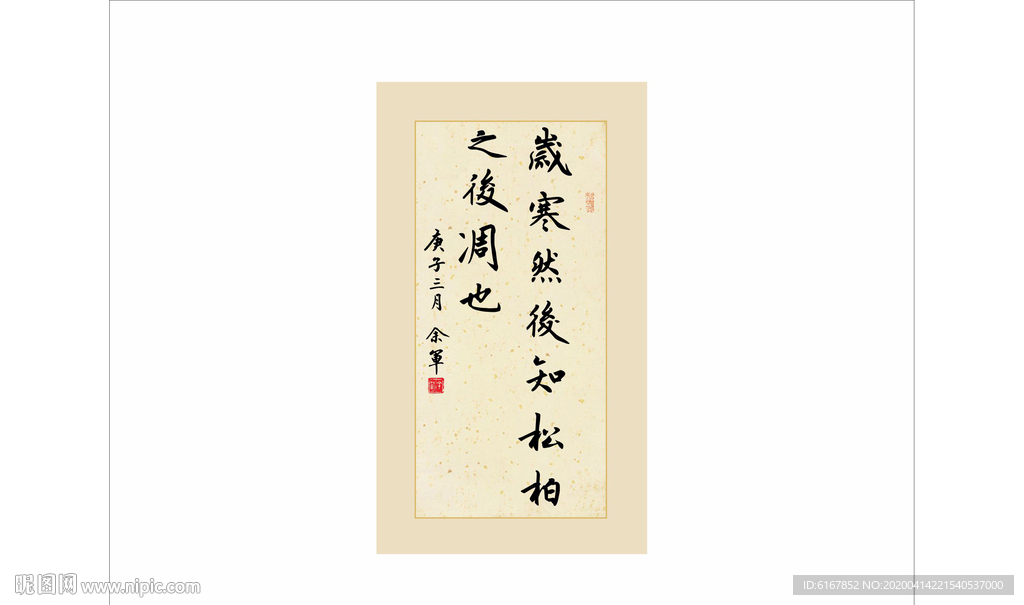 歲寒然後知松柏
之後凋也
庚子三月 余軍
昵图网 www.nipic.com
ID:6167852 NO:20200414221540537000